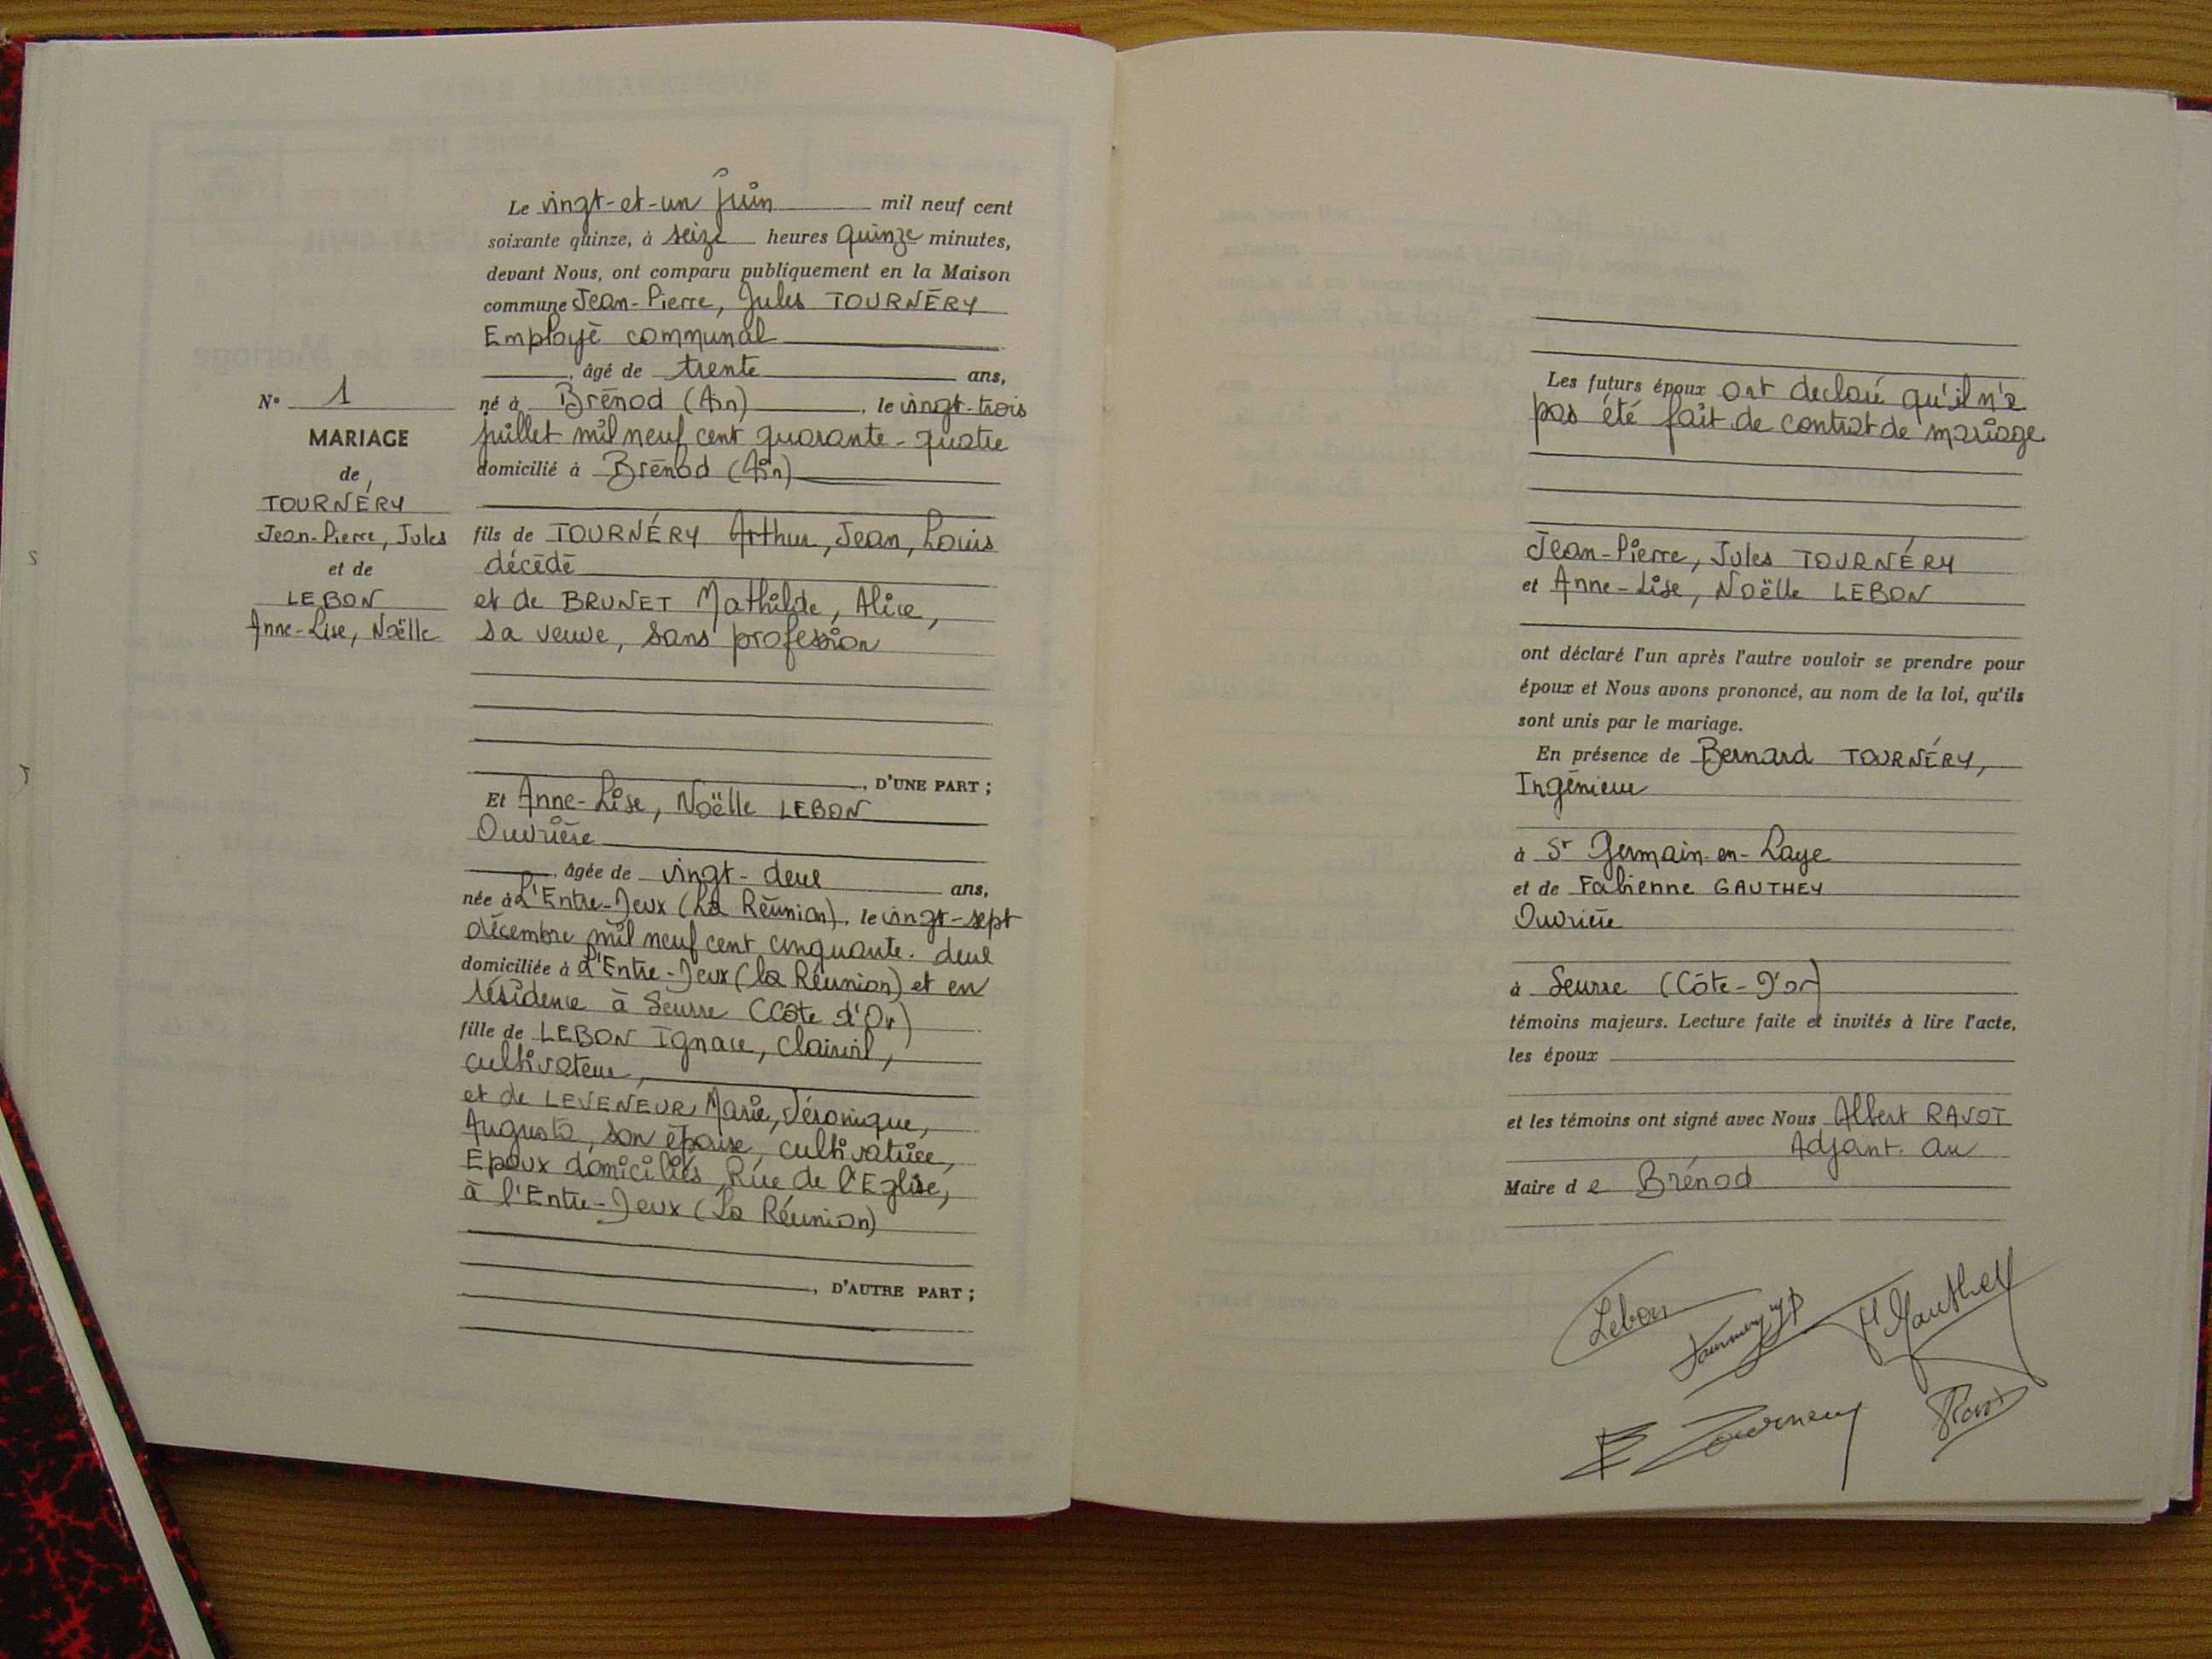 Le vingt-et-un juin mil neuf cent
soixante quinze, à seize heures quinze minutes,
devant Nous, ont comparu publiquement en la Maison
commune Jean-Pierre, Jules TOURNÉRY
Employé communal
, âgé de trente ans,
né à Brénod (Ain), le vingt-trois
juillet mil neuf cent quarante-quatre
domicilié à Brénod (Ain)
N° 1
MARIAGE
de
TOURNÉRY
Jean-Pierre, Jules
et de
LEBON
Anne-Lise, Noëlle
fils de TOURNÉRY Arthur, Jean, Louis
décédé
et de BRUNET Mathilde, Alice,
sa veuve, sans profession
, D'UNE PART ;
Et Anne-Lise, Noëlle LEBON
Ouvrière
, âgée de vingt-deux ans,
née à L'Entre-Deux (La Réunion), le vingt-sept
décembre mil neuf cent cinquante-deux
domiciliée à L'Entre-Deux (la Réunion) et en
résidence à Seurre (Côte d'Or)
fille de LEBON Ignace,
cultivateur,
et de LEVENEUR Marie, Véronique,
Augusta, son épouse, cultivatrice,
Epoux domiciliés Rue de l'Eglise,
à l'Entre-Deux (La Réunion)
, D'AUTRE PART ;
Les futurs époux ont declaré qu'il n'a
pas été fait de contrat de mariage
Jean-Pierre, Jules TOURNÉRY
et Anne-Lise, Noëlle LEBON
ont déclaré l'un après l'autre vouloir se prendre pour
époux et Nous avons prononcé, au nom de la loi, qu'ils
sont unis par le mariage.
En présence de Bernard TOURNÉRY,
Ingénieur
à St Germain-en-Laye
et de Fabienne GAUTHEY
Ouvrière
à Seurre (Côte-D'or)
témoins majeurs. Lecture faite et invités à lire l'acte,
les époux
et les témoins ont signé avec Nous Albert RAVOT
Adjoint au
Maire de Brénod
Lebon
Tournery JP
Gauthey
B Tournery
Ravot